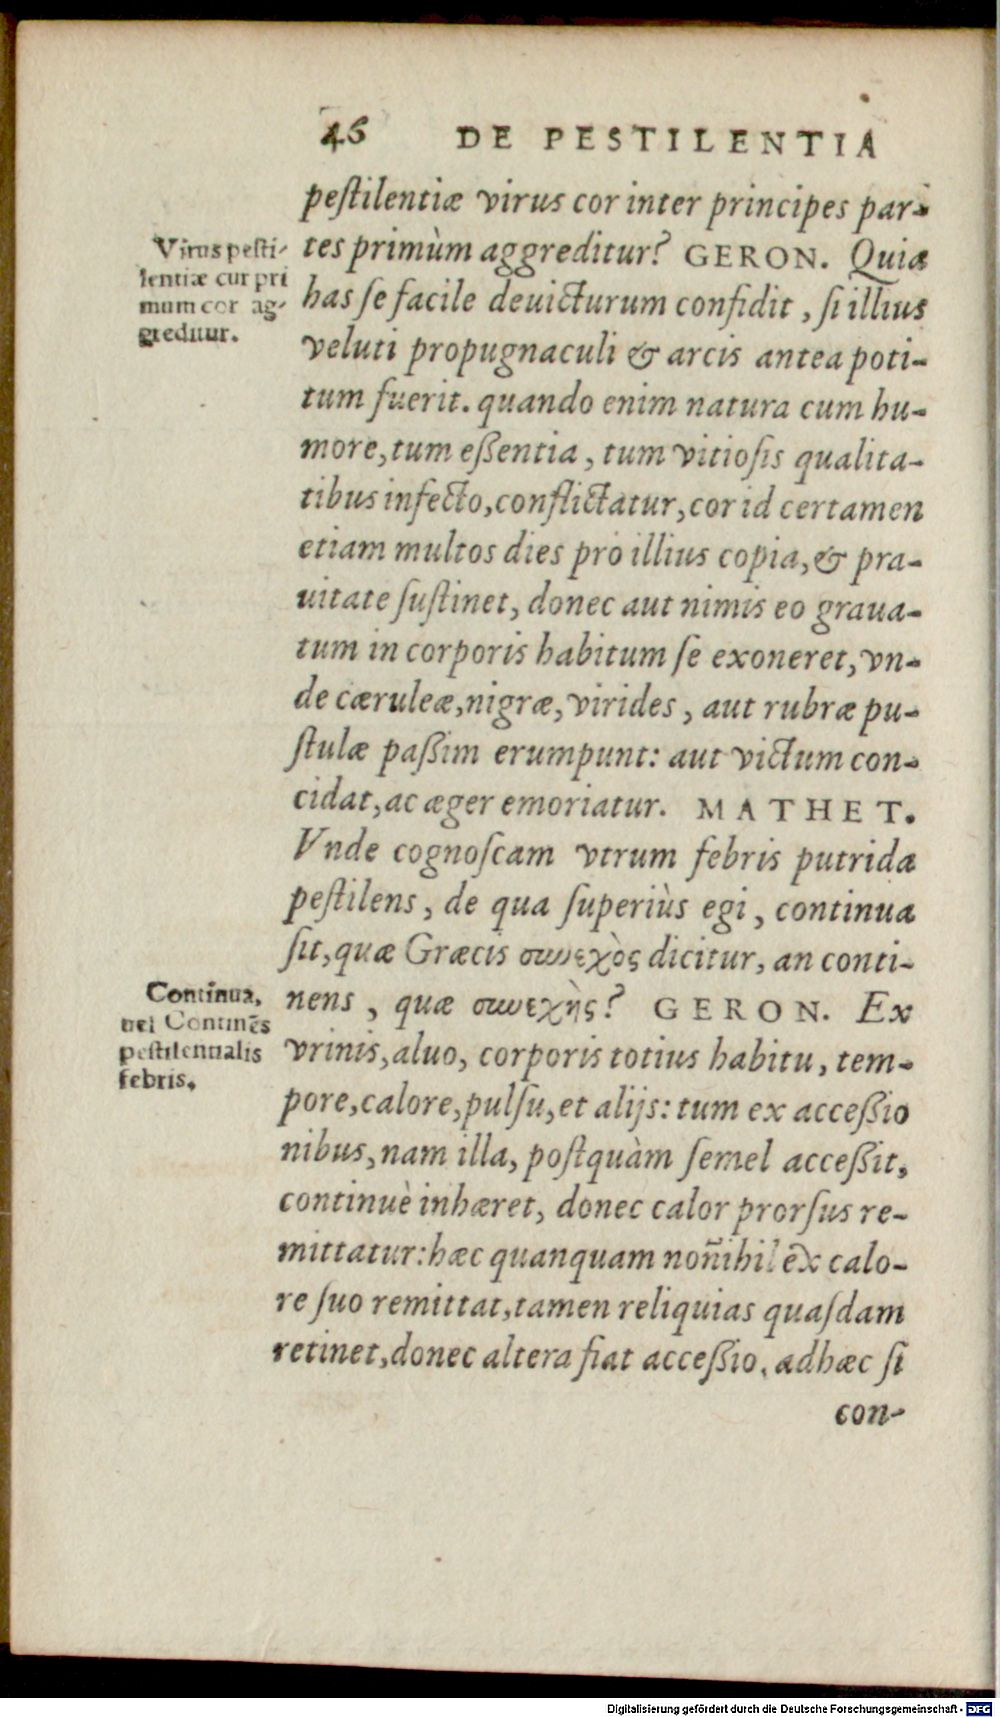 46 DE PESTILENTIA
pestilentiæ virus cor inter principes par-
tes primùm aggreditur? GERON. Quia
has se facile deuicturum confidit, si illius
veluti propugnaculi & arcis antea poti-
tum fuerit. quando enim natura cum hu-
more, tum eßentia, tum vitiosis qualita-
tibus infecto, conflictatur, cor id certamen
etiam multos dies pro illius copia, & pra-
uitate sustinet, donec aut nimis eo graua-
tum in corporis habitum se exoneret, vn-
de cæruleæ, nigræ, virides, aut rubræ pu-
stulæ paßim erumpunt: aut victum con-
cidat, ac æger emoriatur. MATHET.
Vnde cognoscam vtrum febris putrida
pestilens, de qua superiùs egi, continua
sit, quæ Græcis συνεχὸς dicitur, an conti-
nens, quæ συνεχὴς? GERON. Ex
vrinis, aluo, corporis totius habitu, tem-
pore, calore, pulsu, et alijs: tum ex acceßio
nibus, nam illa, postquàm semel acceßit,
continuè inhæret, donec calor prorsus re-
mittatur: hæc quanquam non̄ihil ex calo-
re suo remittat, tamen reliquias quasdam
retinet, donec altera fiat acceßio. adhæc si
con-
Virus pesti-
lentiæ cur pri
mum cor ag-
greditur.
Continua,
uel Continēs
pestilentialis
febris.
Digitalisierung gefördert durch die Deutsche Forschungsgemeinschaft - DFG